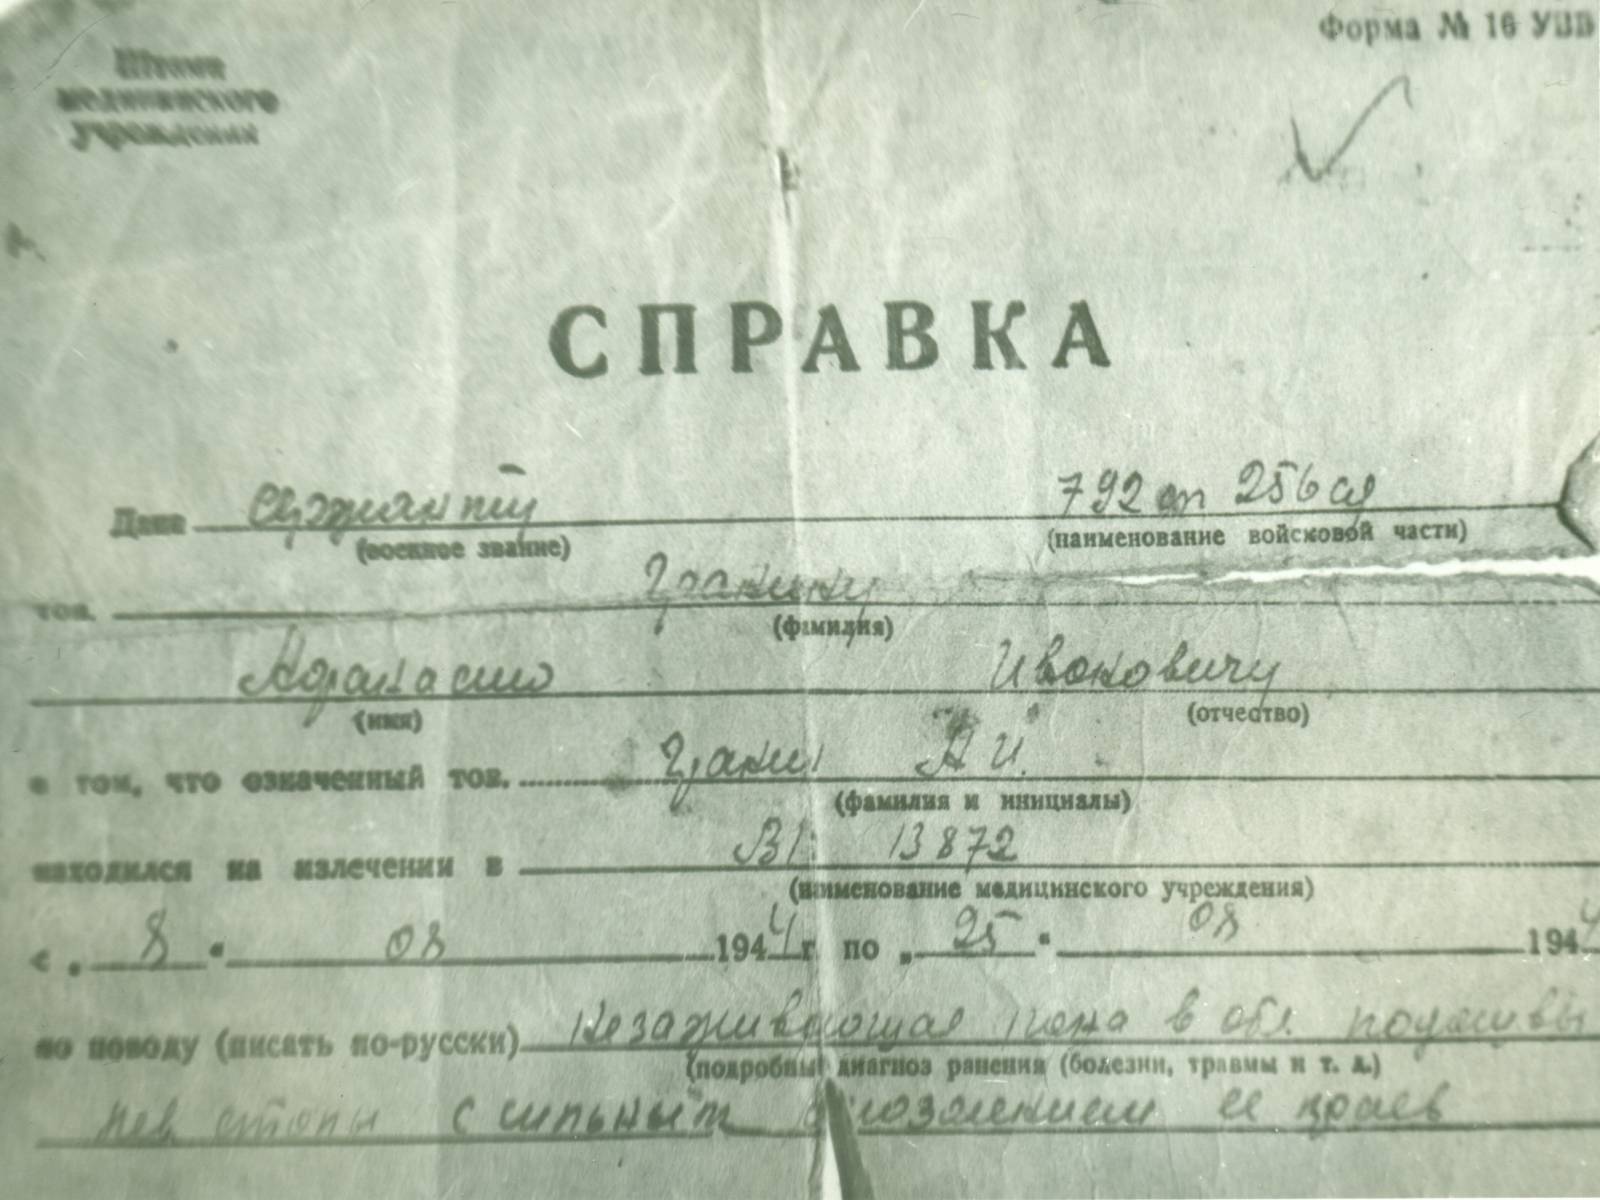 Форма № 16 УВВ
Штамп
медицинского
учреждения
СПРАВКА
Дана Сержанту 792 сп 256 сд
(военное звание) (наименование войсковой части)
тов. Гранину
(фамилия)
Афанасию Ивановичу
(имя) (отчество)
в том, что означенный тов. Гранин А И.
(фамилия и инициалы)
находился на излечении в 13872
(наименование медицинского учреждения)
с „ 8 “ 08 1944 г. по „ 25 “ 08 1944
по поводу (писать по-русски) Незаживающая рана в обл. подошвы
(подробный диагноз ранения (болезни, травмы и т. д.)
лев стопы с сильным омозолением ее краев